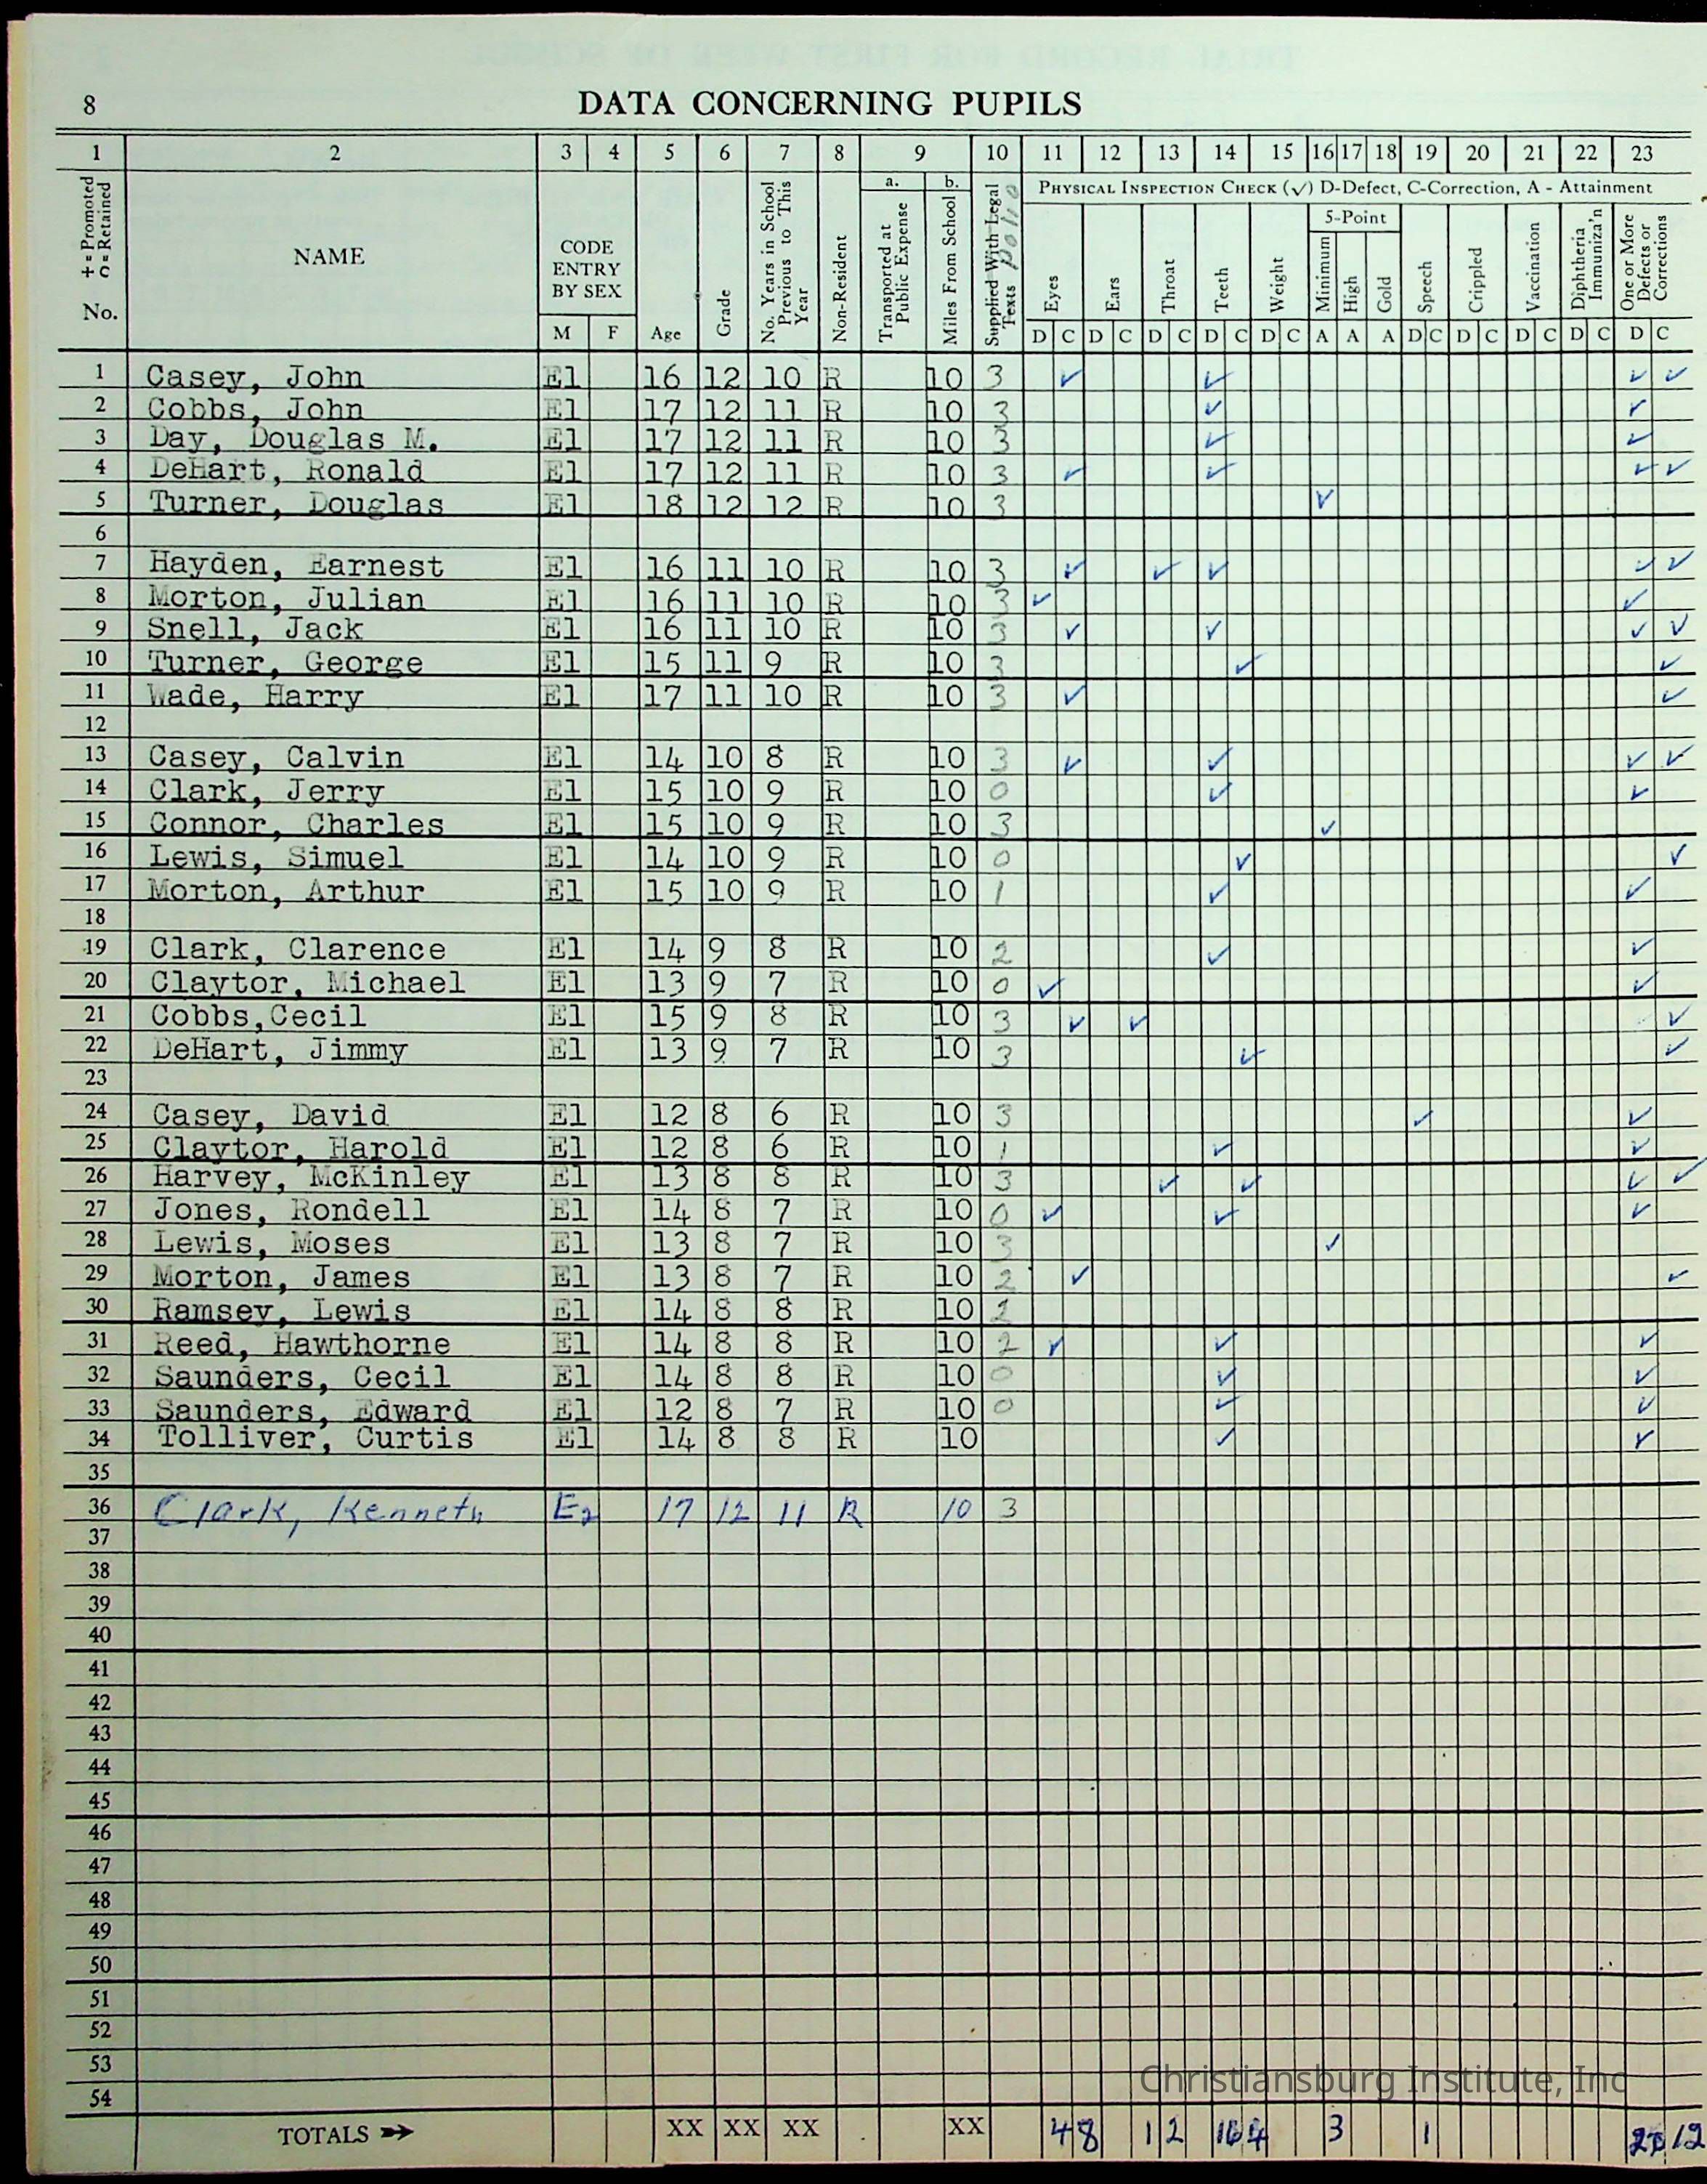 8 DATA CONCERNING PUPILS
1 2 3 4 5 6 7 8 9 10 11 12 13 14 15 16 17 18 19 20 21 22 23
+ = Promoted
= Retained
No.
NAME
CODE ENTRY BY SEX
M F
Age
Grade
No. Years in School Previous to This Year
Non-Resident
a. Transported at Public Expense
b. Miles From School
Supplied With Legal Texts
polio
PHYSICAL INSPECTION CHECK (✓) D-Defect, C-Correction, A - Attainment
5-Point
Eyes Ears Throat Teeth Weight Minimum High Gold Speech Crippled Vaccination Diphtheria Immuniza'n One or More Defects or Corrections
D C D C D C D C D C A A A D C D C D C D C D C
1 Casey, John El 16 12 10 R 10 3 ✓ ✓ ✓ ✓
2 Cobbs, John El 17 12 11 R 10 3 ✓ ✓
3 Day, Douglas M. El 17 12 11 R 10 3 ✓ ✓
4 DeHart, Ronald El 17 12 11 R 10 3 ✓ ✓ ✓ ✓
5 Turner, Douglas El 18 12 12 R 10 3 ✓
6
7 Hayden, Earnest El 16 11 10 R 10 3 ✓ ✓ ✓ ✓ ✓
8 Morton, Julian El 16 11 10 R 10 3 ✓ ✓
9 Snell, Jack El 16 11 10 R 10 3 ✓ ✓ ✓ ✓
10 Turner, George El 15 11 9 R 10 3 ✓ ✓
11 Wade, Harry El 17 11 10 R 10 3 ✓ ✓
12
13 Casey, Calvin El 14 10 8 R 10 3 ✓ ✓ ✓ ✓
14 Clark, Jerry El 15 10 9 R 10 0 ✓ ✓
15 Connor, Charles El 15 10 9 R 10 3 ✓
16 Lewis, Simuel El 14 10 9 R 10 0 ✓ ✓
17 Morton, Arthur El 15 10 9 R 10 1 ✓ ✓
18
19 Clark, Clarence El 14 9 8 R 10 2 ✓ ✓
20 Claytor, Michael El 13 9 7 R 10 0 ✓ ✓
21 Cobbs,Cecil El 15 9 8 R 10 3 ✓ ✓ ✓
22 DeHart, Jimmy El 13 9 7 R 10 3 ✓ ✓
23
24 Casey, David El 12 8 6 R 10 3 ✓ ✓
25 Claytor, Harold El 12 8 6 R 10 1 ✓ ✓
26 Harvey, McKinley El 13 8 8 R 10 3 ✓ ✓ ✓ ✓
27 Jones, Rondell El 14 8 7 R 10 0 ✓ ✓ ✓
28 Lewis, Moses El 13 8 7 R 10 3 ✓
29 Morton, James El 13 8 7 R 10 2 ✓ ✓
30 Ramsey, Lewis El 14 8 8 R 10
31 Reed, Hawthorne El 14 8 8 R 10 2 ✓ ✓ ✓
32 Saunders, Cecil El 14 8 8 R 10 0 ✓ ✓
33 Saunders, Edward El 12 8 7 R 10 0 ✓ ✓
34 Tolliver, Curtis El 14 8 8 R 10 ✓ ✓
35
36 Clark, Kenneth E2 17 12 11 R 10 3
37
38
39
40
41
42
43
44
45
46
47
48
49
50
51
52
53
54
Christiansburg Institute, Inc
TOTALS XX XX XX XX 4 8 1 2 4 3 1 12